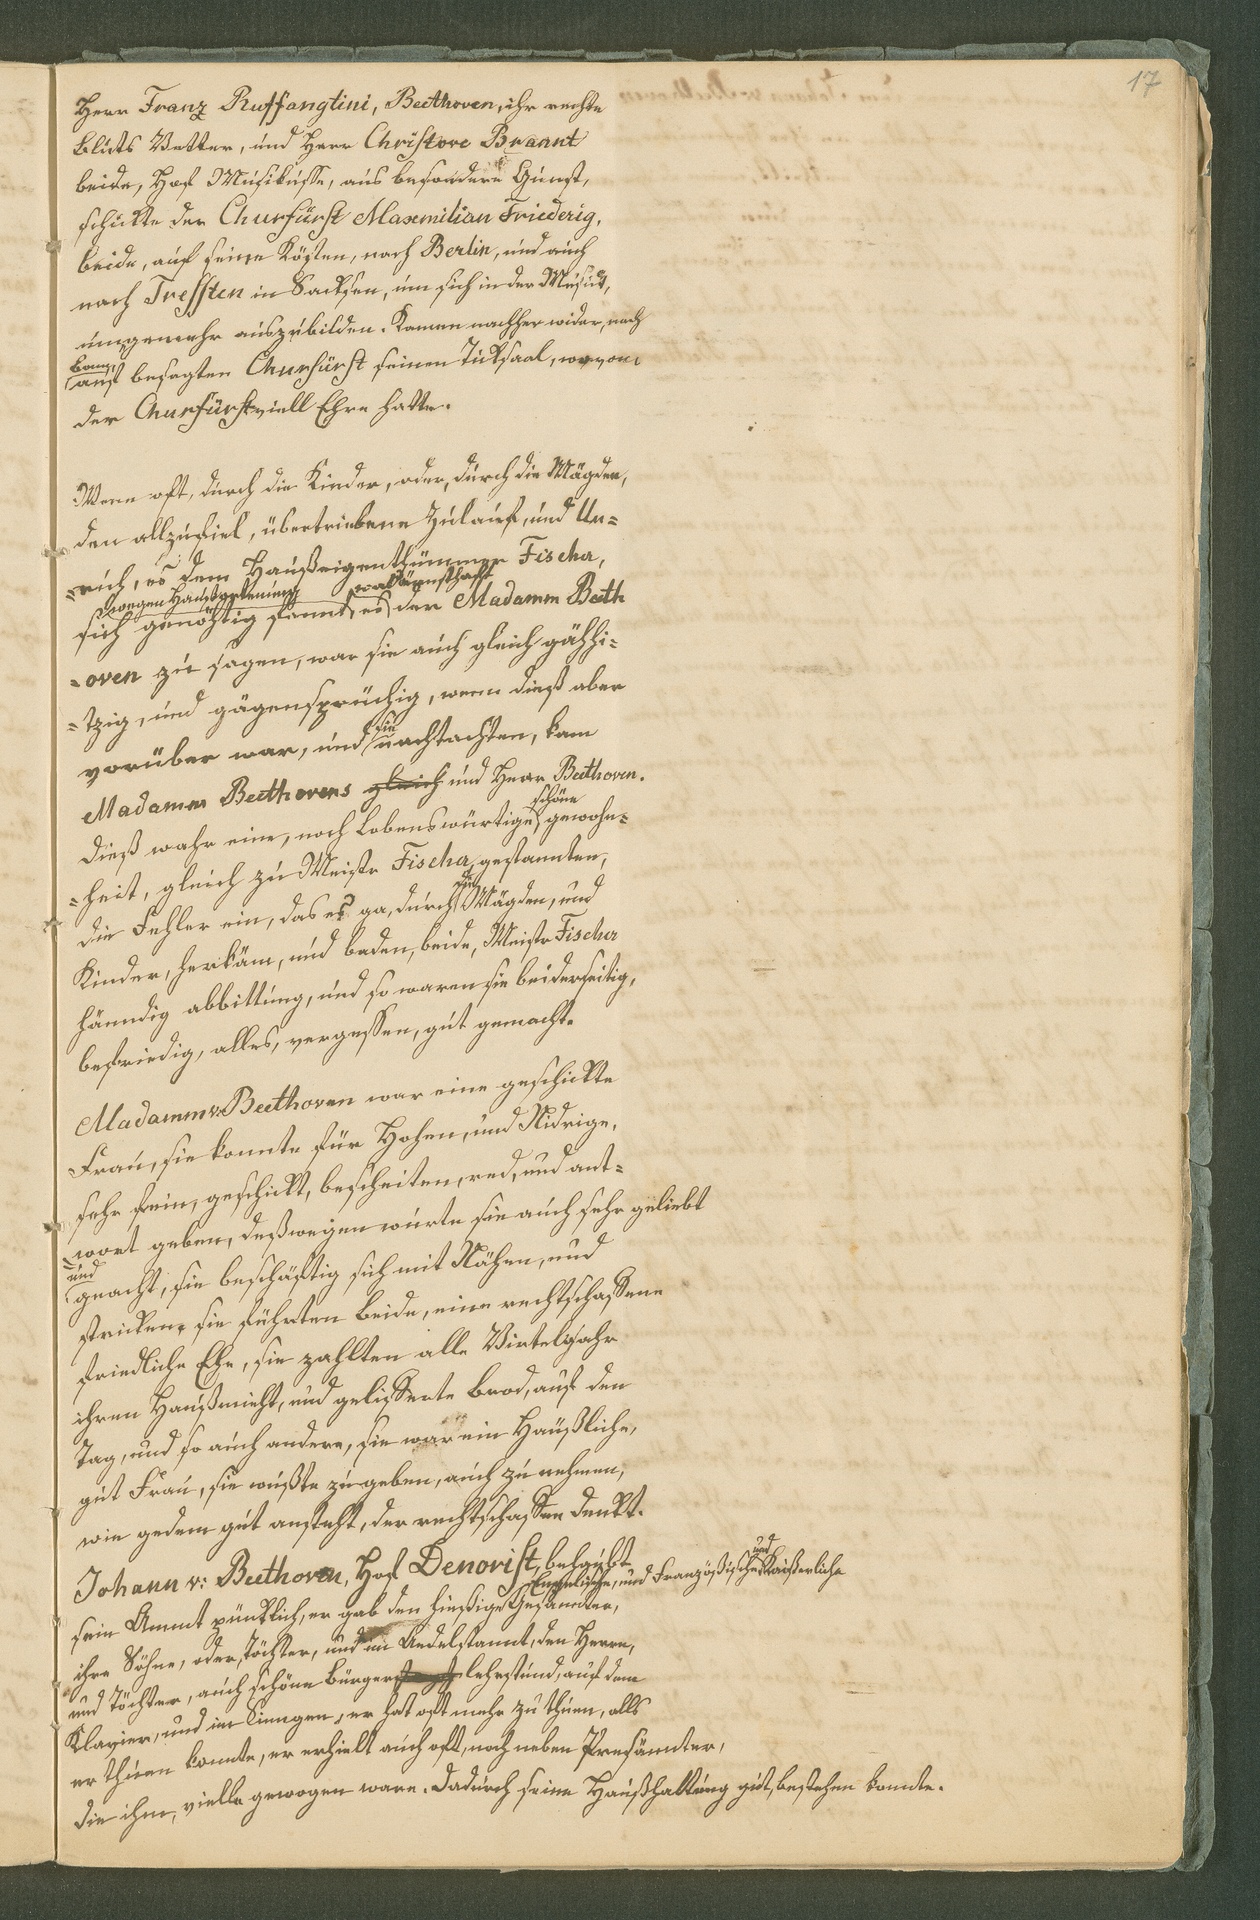 17
Herr Franz Ruffangtini, Beethoven, ihr rechte
bluts Vetter, und Herr Christove Brannt
beide, Hof Musikusse, aus besondere Gunst,
schickte der Churfürst Maxmilian Friederig,
beide, auf seine Kösten, nach Berlin, und auch
nach Tressten in Sacksen, um sich in der Musick,
umgemehr auszubilden. Kamen nachher wider, nach
Bonn,
auf besagten Churfürst seinen Tucksaal, wovon
der Churfürst viell Ehre hatte.
Wenn oft, durch die Kinder, oder, durch die Mägden,
den allzufiel, übertriebene Zulauf, und Un=
=ruh, es dem Haußeigenthümmer Fischer,
wegen Haußortenung
sich genöhtig fannt, es der Madamm Beeth
=oven zu sagen, war sie auch gleich gähhi=
=tzig, und gägensprüchig, wenn dieß aber
vorüber war, und sie nachdachten, kam
Madamm Beethovens gleich und Herr Beethoven.
dieß wahr eine, noch lobenswürtige, schöne gewohn=
=heit, gleich zu Meister Fischer, gestannten,
die Fehler ein, das es ga, durch die Mägden, und
Kinder, herkäm, und baden, beide, Meister Fischer
händig abbittung, und so waren sie beiderseitig,
befriedig, alles, vergessen, gut gemacht.
Madamm v: Beethoven war eine geschickte
Frau, sie konnte für Hohen, und Nidrige,
sehr fein, geschickt, bescheiten, red, und ant=
=wort geben, deßwegen wurte sie auch sehr geliebt
und
geacht, sie beschäftig sich mit Nähen, und
stricken, sie führten beide, eine rechtschaffene
friedliche Ehe, sie zahlten alle Virteljahr
ihren Haußmieht, und gelisserte Brod, auf den
Tag, und so auch andere, sie war ein Häußliche,
gut Frau, sie wußte zu geben, auch zu nehmen,
wie gedem gut ansteht, der rechtschaffen denkt.
Johann v: Beethoven, Hof Denorist, belaubt
sein Ammt pünktlich, er gab den hießige Gesannter,
Engelische, und Französische und Kaißerliche
ihre Söhne, oder, Töchter, und im Aedelstannt, den Herren,
und Töchter, auch schöne Bürger lehrstund, auf dem
Klavier, und im Singen, er hat oft mehr zu thuen, alls
er thuen konnte, er erhielt auch oft, noch neben Presännter,
die ihm, vielle gewogen ware. dadurch seine Haußhaltung gut, bestehen konnte.